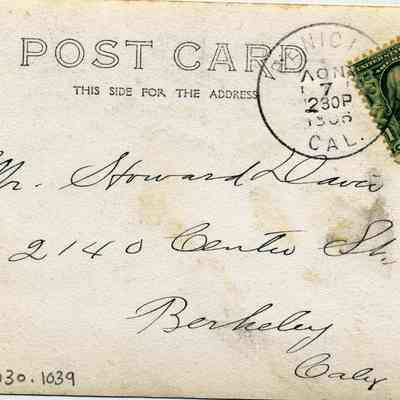 POST CARD
THIS SIDE FOR THE ADDRESS
NOV
7
1230P
1906
CAL.
Mr. Howard Davis
2140 Center St.
Berkeley
Caly
030.1039